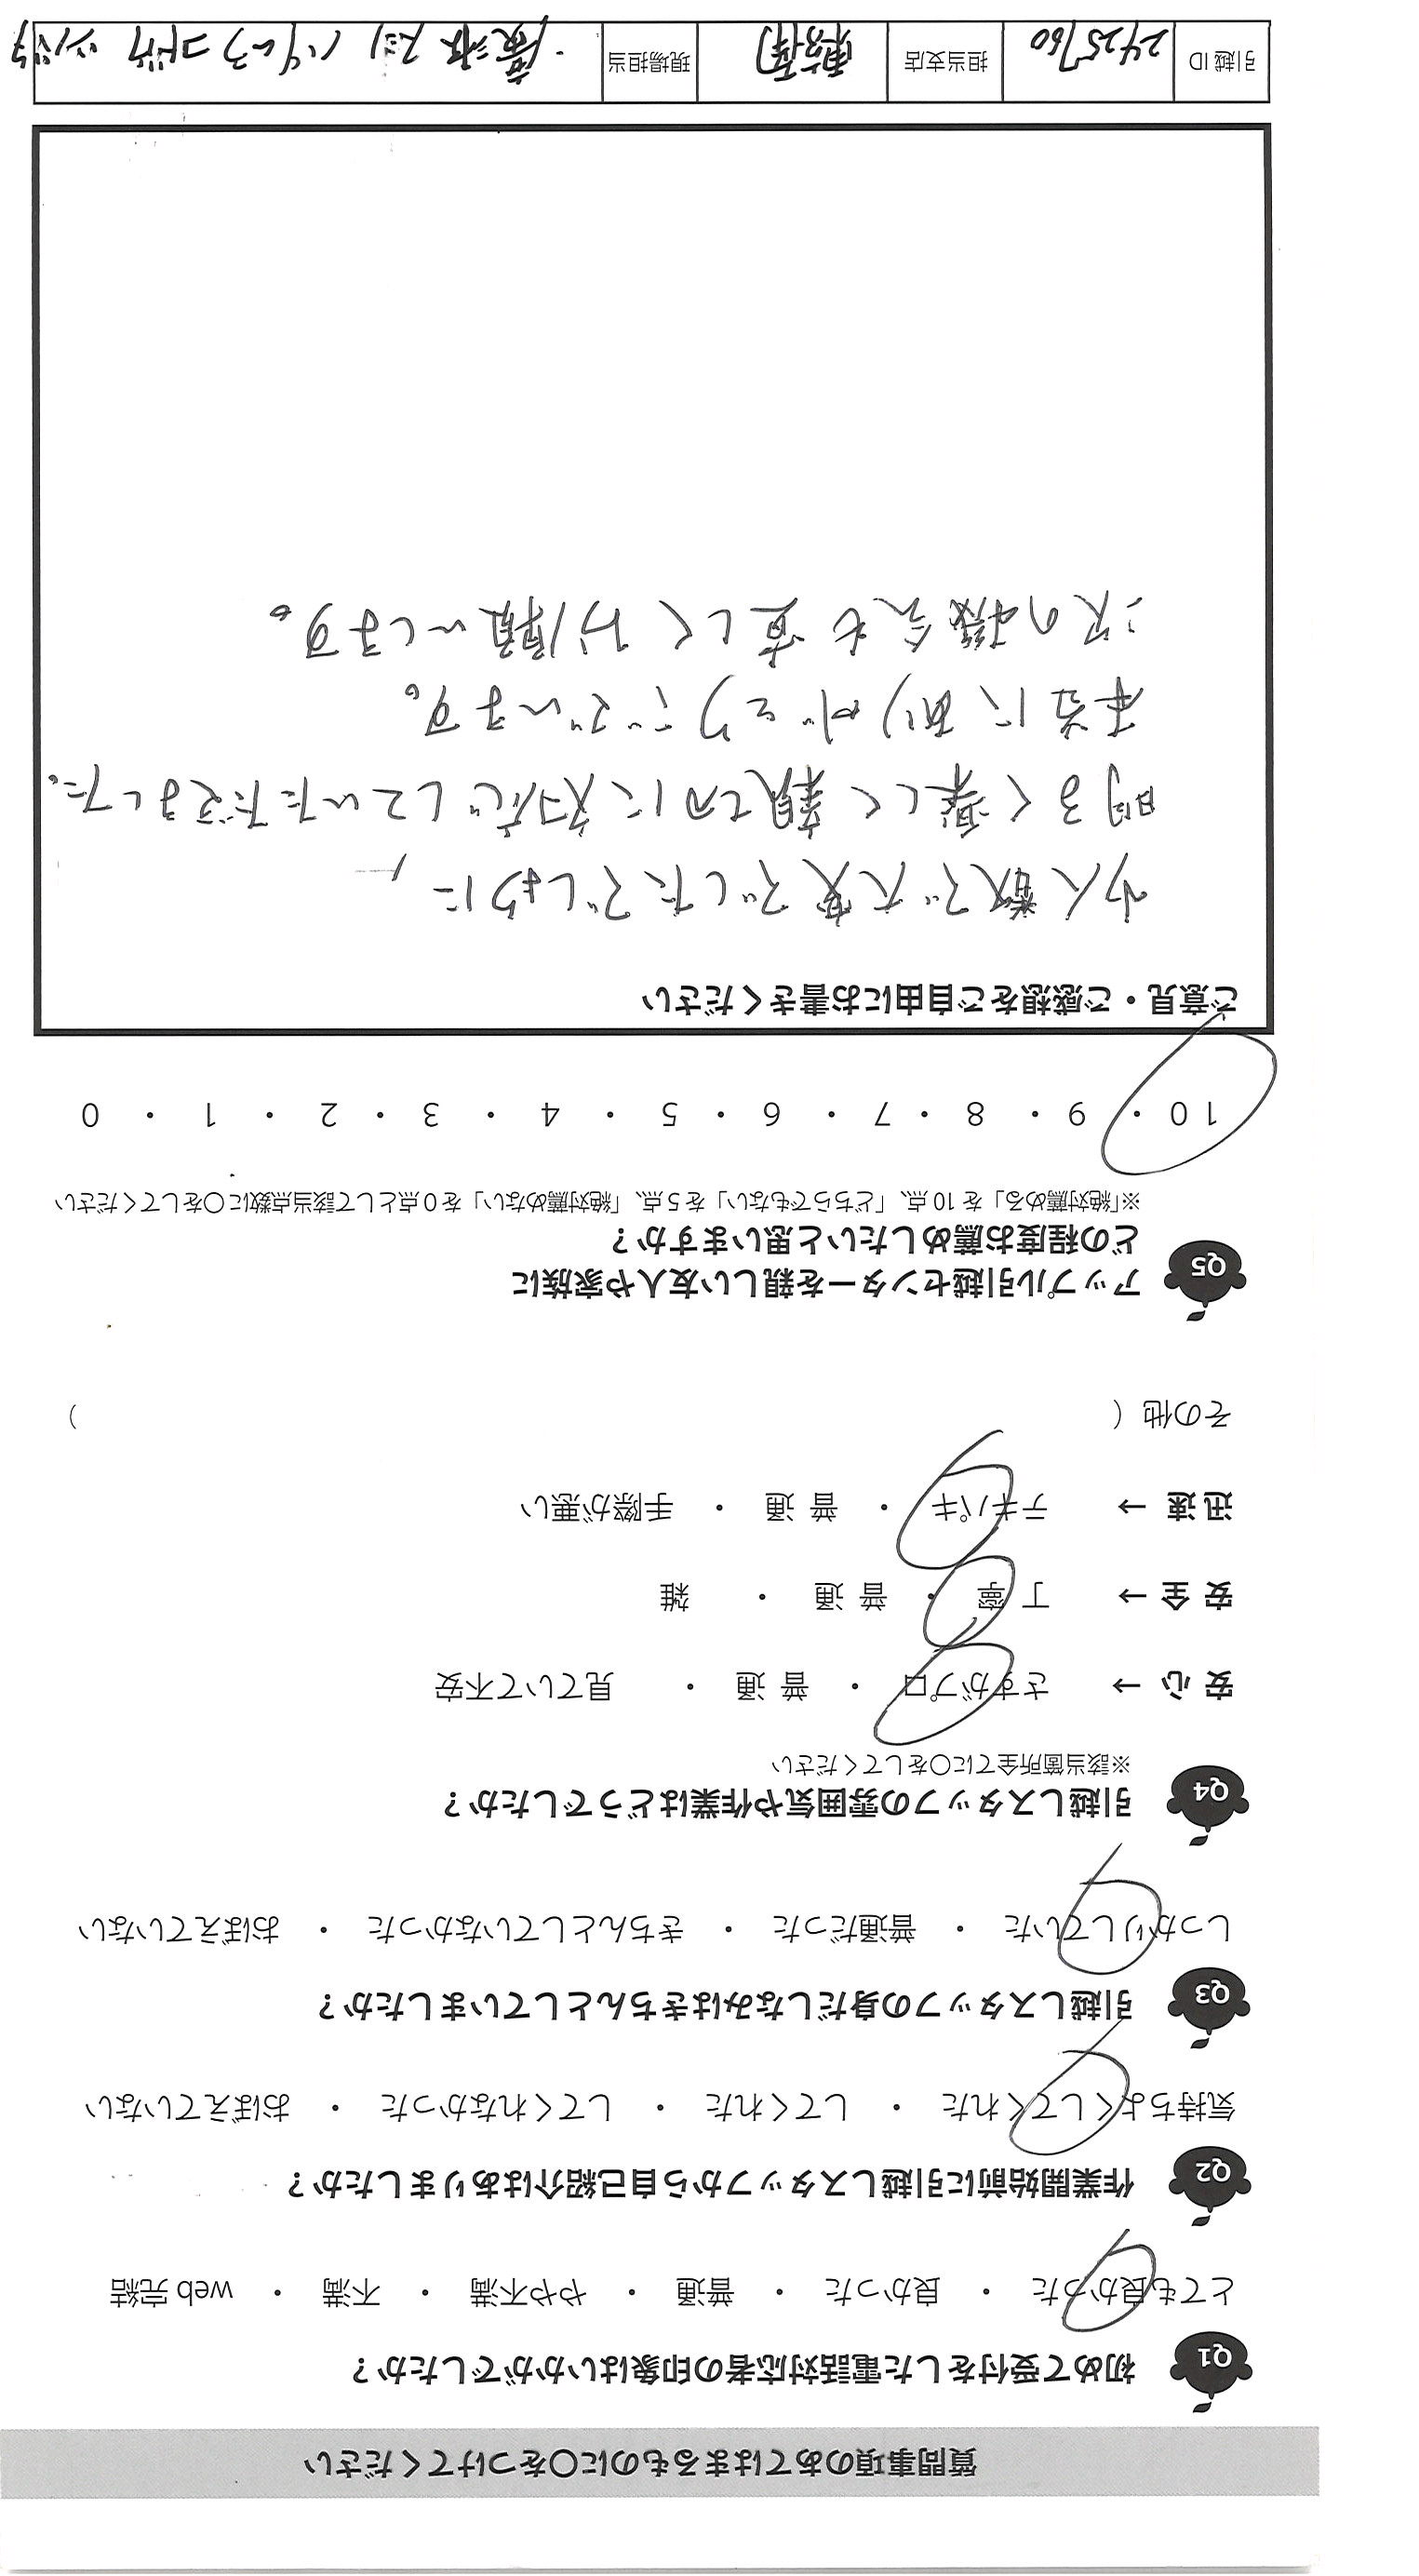 質問事項のあてはまるものに○をつけてください
Q1 初めて受付をした電話対応者の印象はいかがでしたか？
とても良かった ・ 良かった ・ 普通 ・ やや不満 ・ 不満 ・ web 完結
Q2 作業開始前に引越しスタッフから自己紹介はありましたか？
気持ちよくしてくれた ・ してくれた ・ してくれなかった ・ おぼえていない
Q3 引越しスタッフの身だしなみはきちんとしていましたか？
しっかりしていた ・ 普通だった ・ きちんとしていなかった ・ おぼえていない
Q4 引越しスタッフの雰囲気や作業はどうでしたか？
※該当箇所全てに○をしてください
安 心 → さすがプロ ・ 普 通 ・ 見ていて不安
安 全 → 丁 寧 ・ 普 通 ・ 雑
迅 速 → テキパキ ・ 普 通 ・ 手際が悪い
その他（ ）
Q5 アップル引越センターを親しい友人や家族に
どの程度お薦めしたいと思いますか？
※「絶対薦める」を 10 点、「どちらでもない」を 5 点、「絶対薦めない」を 0 点として該当点数に○をしてください
10 ・ 9 ・ 8 ・ 7 ・ 6 ・ 5 ・ 4 ・ 3 ・ 2 ・ 1 ・ 0
ご意見・ご感想をご自由にお書きください
少人数で大変でしたでしょうに、
明るく楽しく親切に対応していただきました。
本当にありがとうございます。
次の機会も宜しくお願いします。
引越 ID 2425760 担当支店 東京南 現場担当